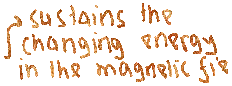 sustains the
changing energy
in the magnetic fie